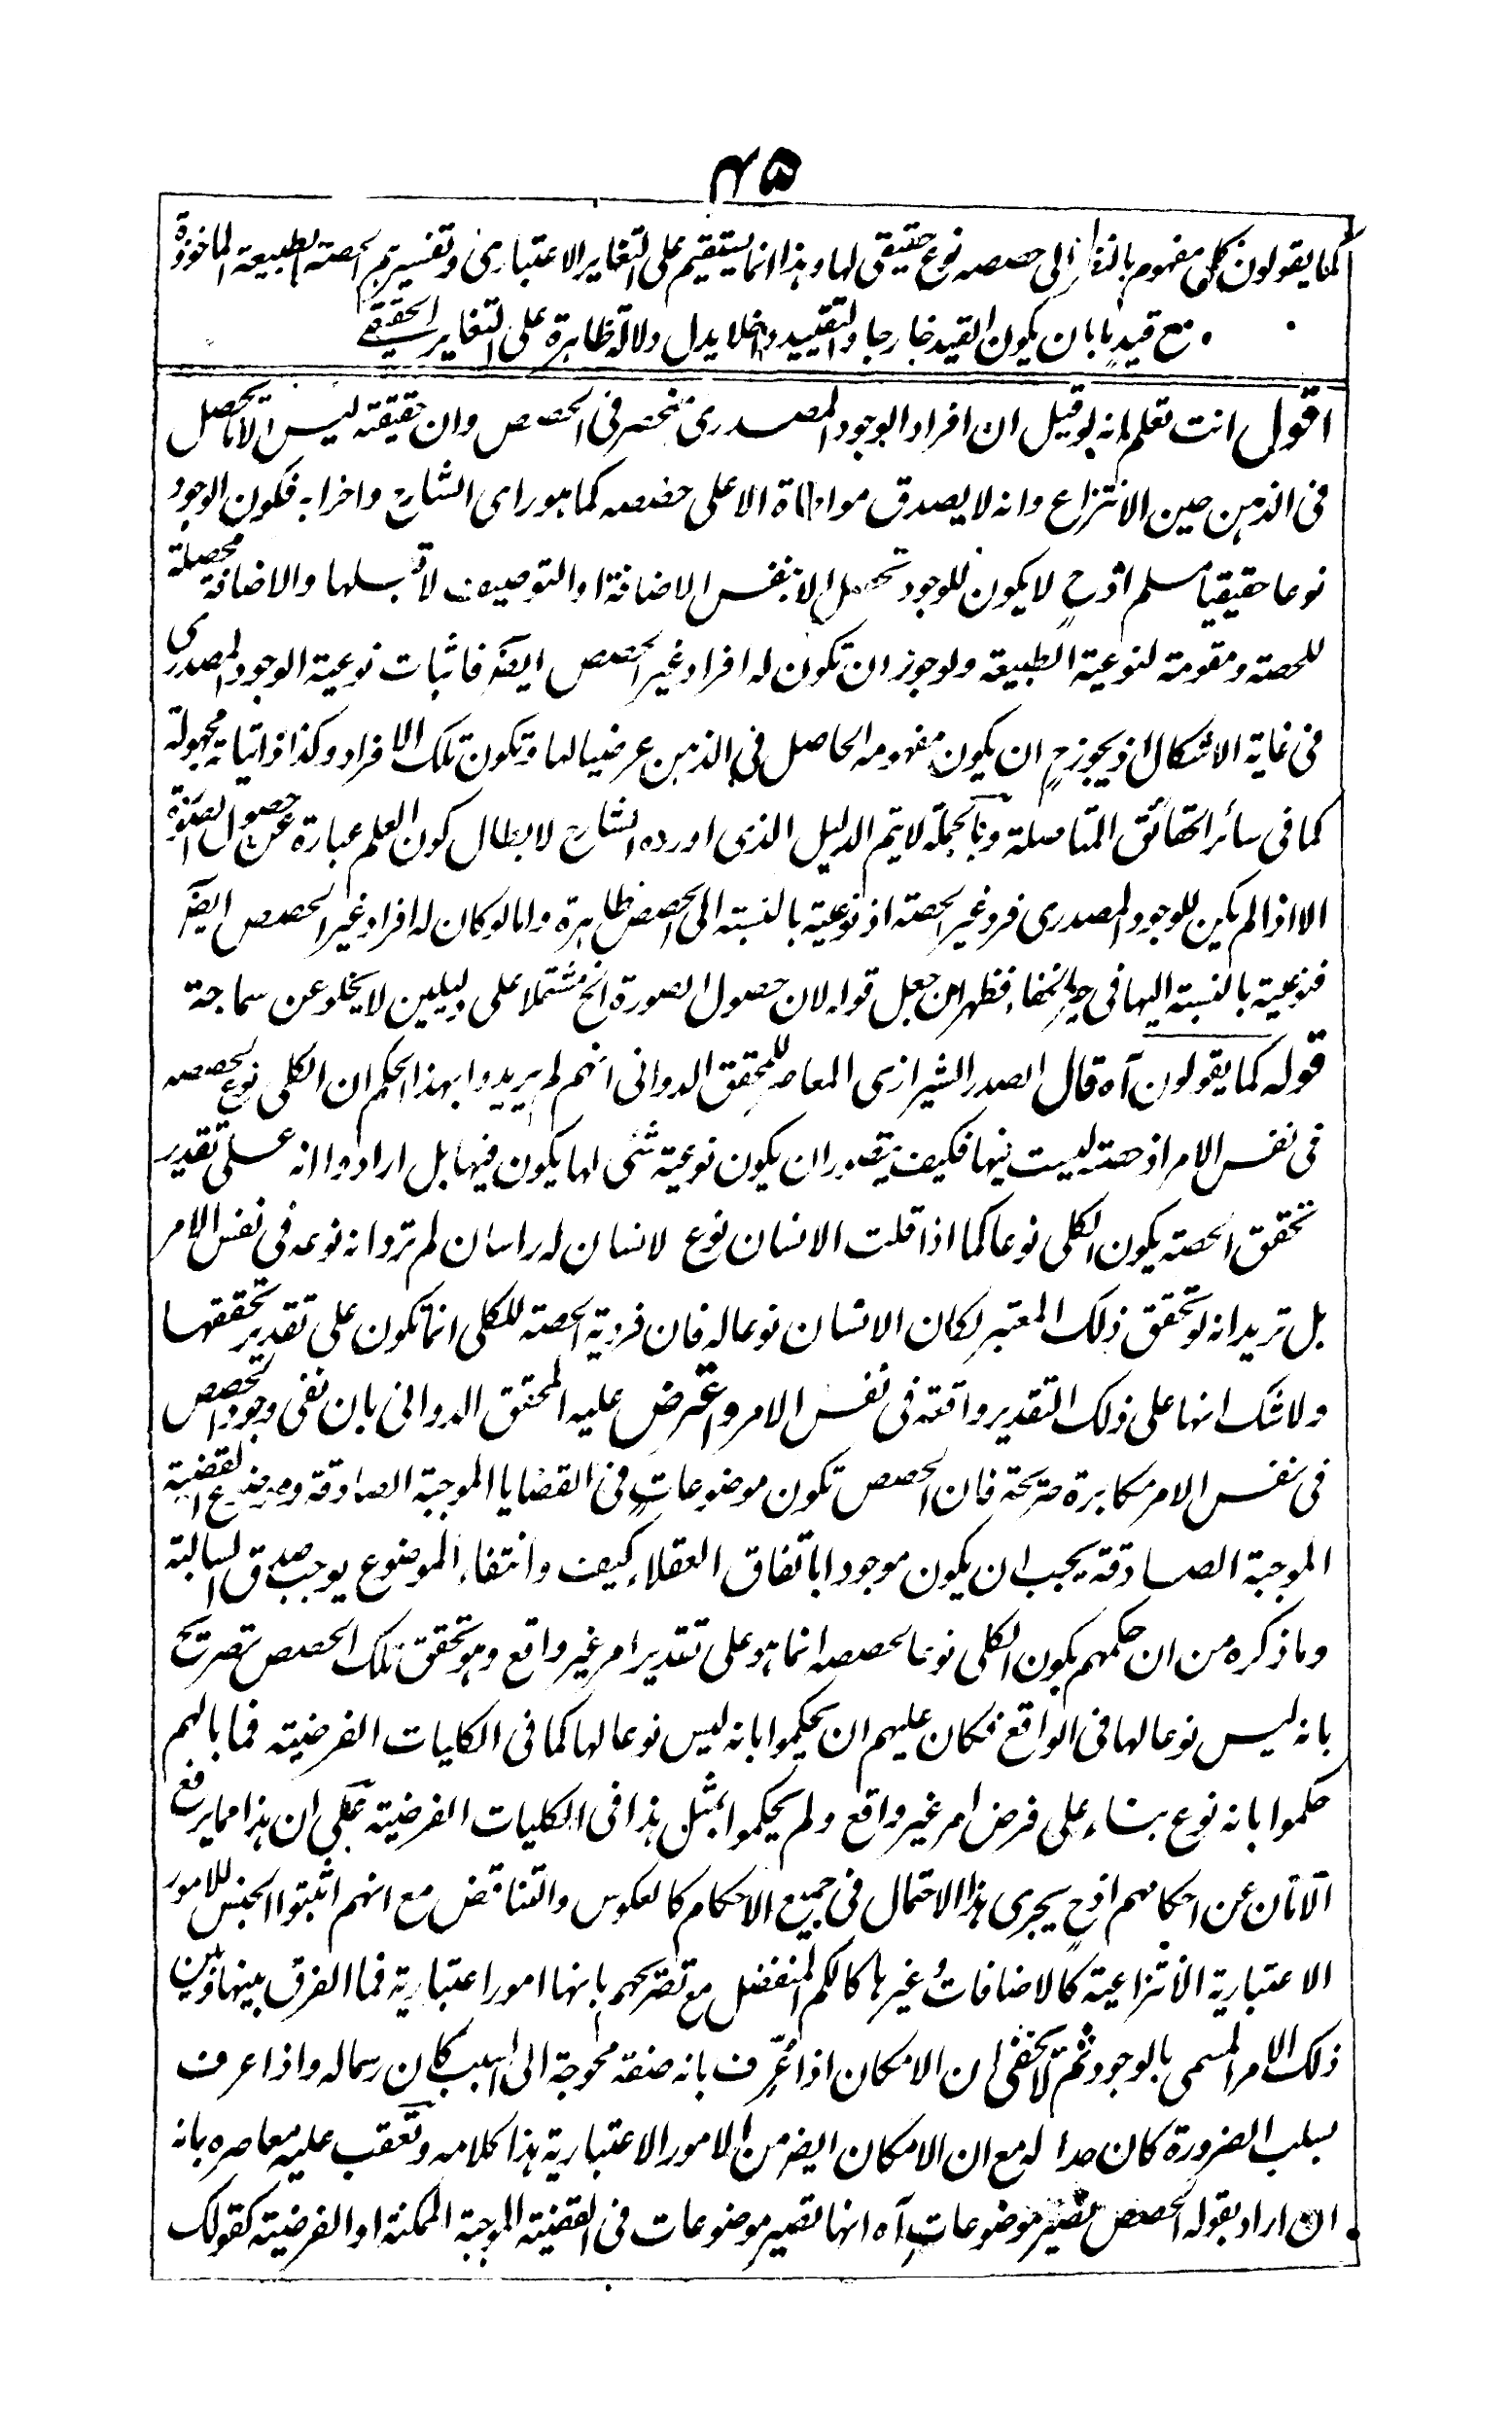 ۴۵
كما يقولون كلى مفهوم بالنظر الى حصصه نوع حقيقى لها وهذا انما يستقيم على التغاير الاعتبارى وتفسيرهم الحصة بالطبيعة الماخوذة
مع قيد ما بان يكون القيد خارجا والتقييد داخلا يدل دلالة ظاهرة على التغاير الحقيقے
اقول انت تعلم انه لو قيل ان افراد الوجود المصدرى منحصر فى الحصص وان حقيقته ليس الا ما يحصل
فى الذهن حين الانتزاع وانه لا يصدق مواطاة الا على حصصه كما هو راى الشارح واحزابه فكون الوجود
نوعا حقيقيا مسلم اذ ح لا يكون للوجود تحصل الا بنفس الاضافة او التوصيف لا قبلها والاضافة محصلة
للحصة ومقومة لنوعية الطبيعة ولو جوز ان تكون له افراد غير الحصص ايضا فاثبات نوعية الوجود المصدرى
فى غاية الاشكال اذ يجوز ح ان يكون مفهومه الحاصل فى الذهن عرضيا لها وتكون تلك الافراد وكذا ذاتياته مجهولة
كما فى سائر الحقائق المتاصلة وبالجملة لا يتم الدليل الذى اورده الشارح لابطال كون العلم عبارة عن حصول الصورة
الا اذا لم يكن للوجود المصدرى فرد غير الحصة اذ نوعية بالنسبة الى الحصص ظاهرة واما لو كان له افراد غير الحصص ايضا
فنوعية بالنسبة اليها فى حيز الخفاء فظهر ان جعل قوله لان حصول الصورة الخ مشتملا على دليلين لا يخلو عن سماجة
قوله كما يقولون آه قال الصدر الشيرازى المعاصر للمحقق الدوانى انهم لم يريدوا بهذا الحكم ان الكلى نوع لحصصه
فى نفس الامر اذ حصته ليست فيها فكيف يتصور ان يكون نوعية شئ لها يكون فيها بل ارادوا انه على تقدير
تحقق الحصة يكون الكلى نوعا كما اذا قلت الانسان نوع لانسان له راسان لم ترد انه نوعه فى نفس الامر
بل تريد انه لو تحقق ذلك المعتبر لكان الانسان نوعا له فان فردية الحصة للكلى انما تكون على تقدير تحققها
ولا شك انها على ذلك التقدير واقعة فى نفس الامر واعترض عليه المحقق الدوانى بان نفى وجود الحصص
فى نفس الامر مكابرة صريحة فان الحصص تكون موضوعات فى القضايا الموجبة الصادقة وموضوع القضية
الموجبة الصادقة يجب ان يكون موجودا باتفاق العقلاء كيف وانتفاء الموضوع يوجب صدق السالبة
وما ذكره من ان حكمهم بكون الكلى نوعا لحصصه انما هو على تقدير امر غير واقع وهو تحقق تلك الحصص تصريح
بانه ليس نوعا لها فى الواقع فكان عليهم ان يحكموا بانه ليس نوعا لها كما فى الكليات الفرضية فما بالهم
حكموا بانه نوع بناء على فرض امر غير واقع ولم يحكموا بمثل هذا فى الكليات الفرضية على ان هذا مما يرفع
الامان عن احكامهم اذ ح يجرى هذا الاحتمال فى جميع الاحكام كالعكوس والتناقض مع انهم اثبتوا الجنس للامور
الاعتبارية الانتزاعية كالاضافات وغيرها كالكم المنفصل مع تصريحهم بانها امور اعتبارية فما الفرق بينها وبين
ذلك الامر المسمى بالوجود ثم لا يخفى ان الامكان اذا عرف بانه صفة محوجة الى السبب كان رسما له واذا عرف
بسلب الضرورة كان حدا له مع ان الامكان ايضا من الامور الاعتبارية هذا كلامه وتعقب عليه معاصره بانه
ان اراد بقوله الحصص تصير موضوعات آه انها تصير موضوعات فى القضية الموجبة الممكنة او الفرضية كقولك